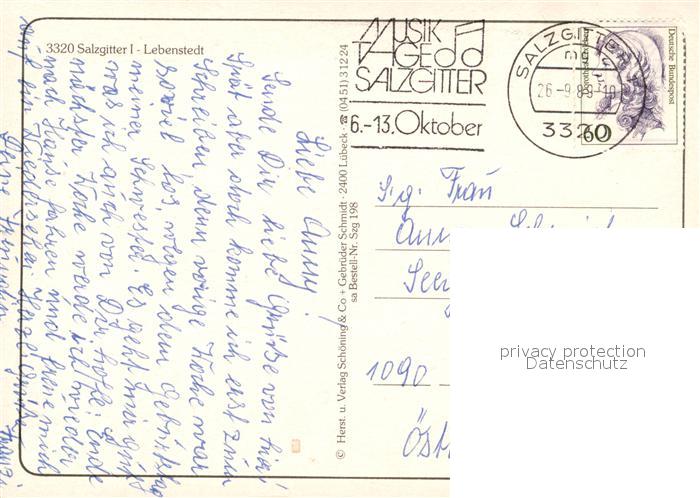 3320 Salzgitter I - Lebenstedt
MUSIK
TAGE
SALZGITTER
6.-13. Oktober
SALZGITTER
26.-9.89.-10
3320
Deutsche Bundespost
60
Liebe Anny!
Sende Dir liebe Grüße von hier
aber doch komme ich erst zum
Schreiben, denn vorige Woche war
los, wegen dem Geburtstag
meiner Schwester. Es geht mir gut
was ich auch von Dir hoffe. Ende
nächster Woche werde ich wieder
nach Hause fahren und freue mich
auf ein Wiedersehen. Herzl. Grüße
© Herst. u. Verlag Schöning & Co + Gebrüder Schmidt · 2400 Lübeck · ☎ (04 51) 3 12 24
sa Bestell-Nr. Szg 198
S.g. Frau
1090
privacy protection
Datenschutz